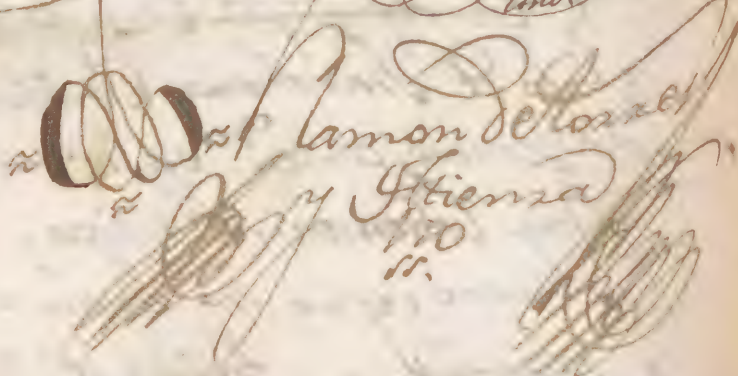 Ramon de Torres
y Atienza
sso
ss.